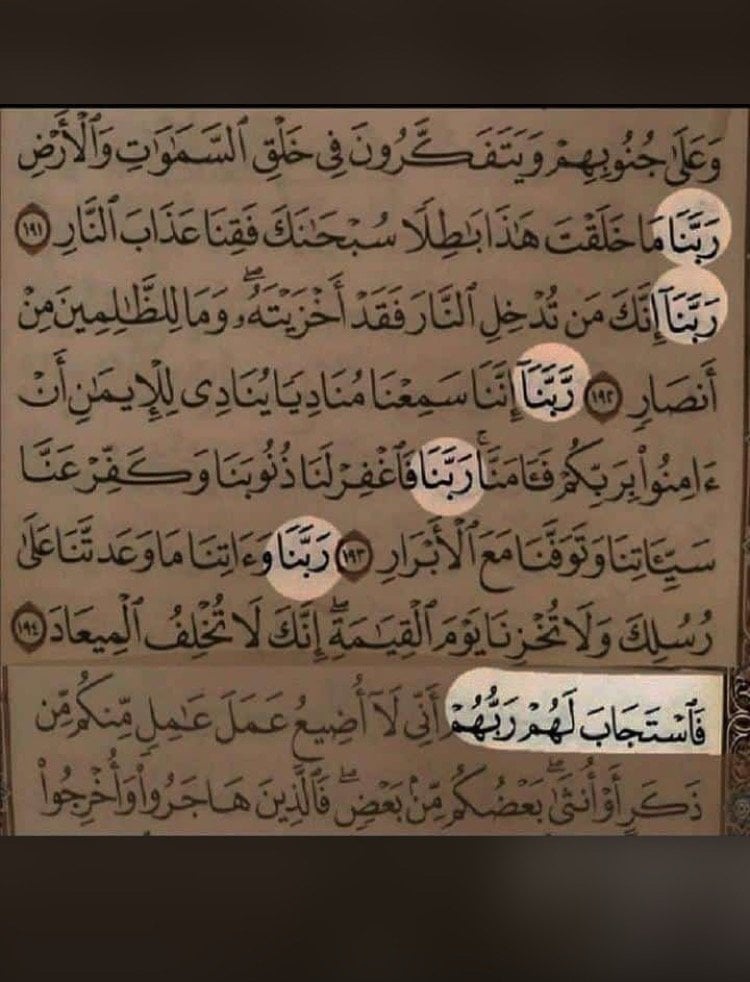 وَعَلَىٰ جُنُوبِهِمْ وَيَتَفَكَّرُونَ فِى خَلْقِ ٱلسَّمَٰوَٰتِ وَٱلْأَرْضِ
رَبَّنَا مَا خَلَقْتَ هَٰذَا بَٰطِلًا سُبْحَٰنَكَ فَقِنَا عَذَابَ ٱلنَّارِ ١٩١
رَبَّنَآ إِنَّكَ مَن تُدْخِلِ ٱلنَّارَ فَقَدْ أَخْزَيْتَهُۥ ۖ وَمَا لِلظَّٰلِمِينَ مِنْ
أَنصَارٍ ١٩٢ رَّبَّنَآ إِنَّنَا سَمِعْنَا مُنَادِيًا يُنَادِى لِلْإِيمَٰنِ أَنْ
ءَامِنُوا۟ بِرَبِّكُمْ فَـَٔامَنَّا ۚ رَبَّنَا فَٱغْفِرْ لَنَا ذُنُوبَنَا وَكَفِّرْ عَنَّا
سَيِّـَٔاتِنَا وَتَوَفَّنَا مَعَ ٱلْأَبْرَارِ ١٩٣ رَبَّنَا وَءَاتِنَا مَا وَعَدتَّنَا عَلَىٰ
رُسُلِكَ وَلَا تُخْزِنَا يَوْمَ ٱلْقِيَٰمَةِ ۗ إِنَّكَ لَا تُخْلِفُ ٱلْمِيعَادَ ١٩٤
فَٱسْتَجَابَ لَهُمْ رَبُّهُمْ أَنِّى لَآ أُضِيعُ عَمَلَ عَٰمِلٍ مِّنكُم مِّن
ذَكَرٍ أَوْ أُنثَىٰ ۖ بَعْضُكُم مِّنۢ بَعْضٍ ۖ فَٱلَّذِينَ هَاجَرُوا۟ وَأُخْرِجُوا۟